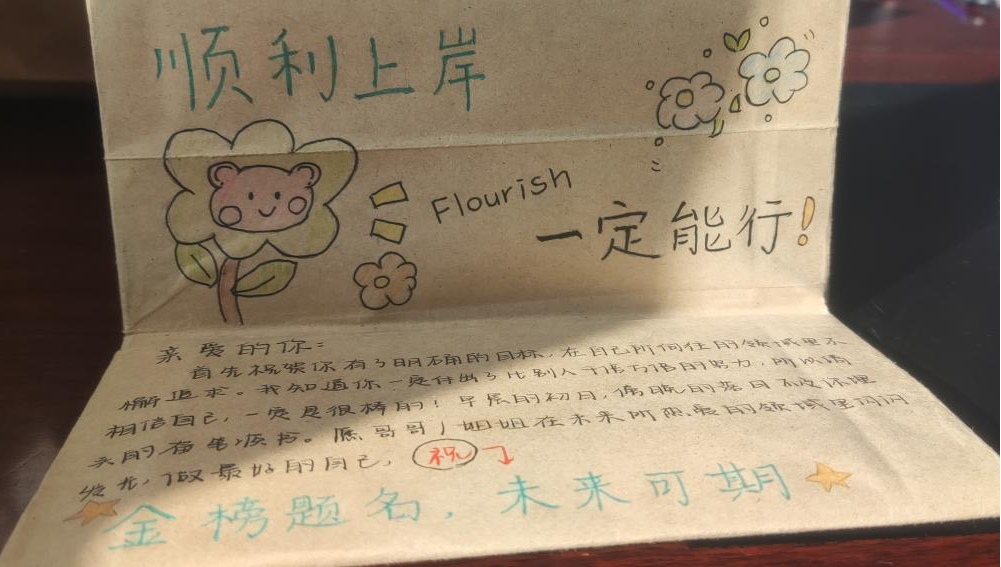 顺利上岸
Flourish
一定能行!
亲爱的你:
首先祝贺你有了明确的目标,在自己所向往的领域里不
懈追求。我知道你一定付出了比别人千倍万倍的努力,所以请
相信自己,一定是很棒的!早晨的初日,傍晚的落日不及你埋
头的奋笔疾书。愿哥哥/姐姐在未来所热爱的领域里闪闪
发光,做最好的自己,祝
金榜题名,未来可期